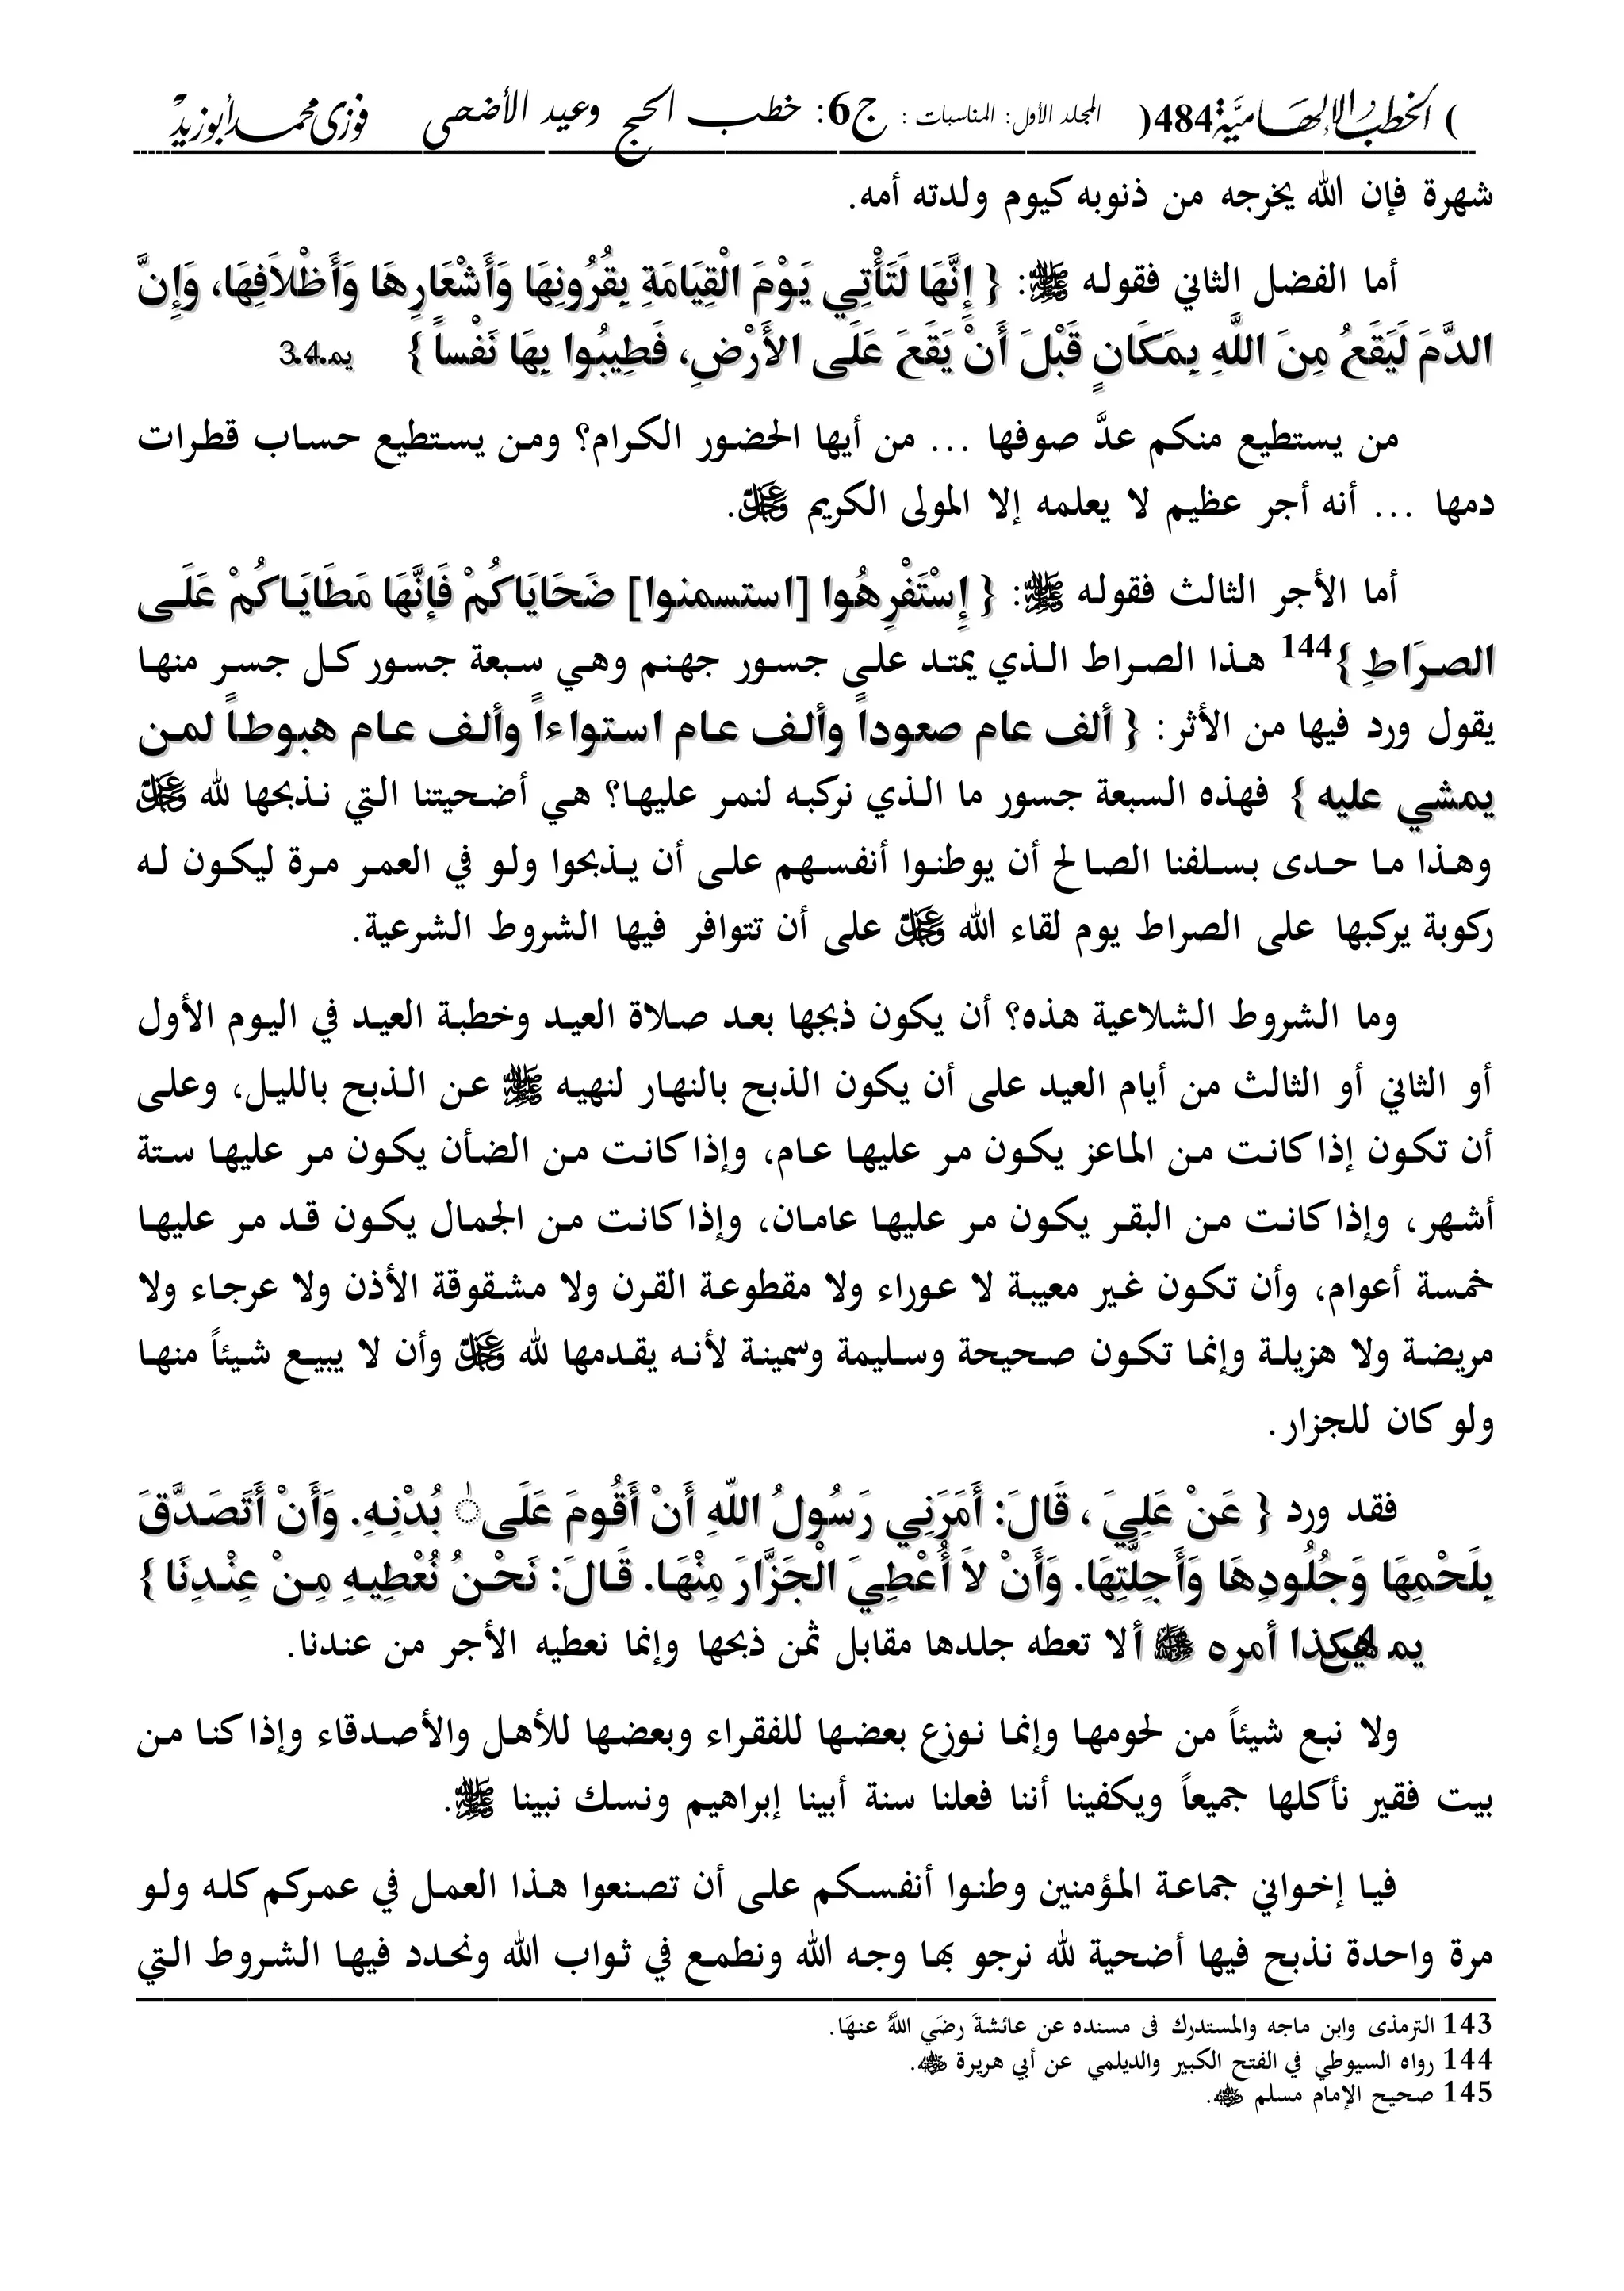 ( الخطب الإلهامية 484 ( المجلد الأول: المناسبات : ج6: خطب الحج وعيد الأضحى فوزى محمد أبوزيد
شهرة فإن الله يخرجه من ذنوبه كيوم ولدته أمه.
أما الفضل الثاني فقوله ﷺ: { إِنَّهَا لَتَأْتِي يَوْمَ الْقِيَامَةِ بِقُرُونِهَا وَأَشْعَارِهَا وَأَظْلاَفِهَا، وَإِنَّ
الدَّمَ لَيَقَعُ مِنَ اللَّهِ بِمَكَانٍ قَبْلَ أَنْ يَقَعَ عَلَى الأَرْضِ، فَطِيبُوا بِهَا نَفْساً }
من يستطيع منكم عدَّ صوفها ... من أيها الحضور الكرام؟ ومن يستطيع حساب قطرات
دمها ... أنه أجر عظيم لا يعلمه إلا المولى الكريم عَزَّ وَجَلَّ.
أما الأجر الثالث فقوله ﷺ: { إِسْتَفْرِهُوا [استسمنوا] ضَحَايَاكُمْ فَإنَّهَا مَطَايَاكُمْ عَلَى
الصرَاطِ }144 هذا الصراط الذي يمتد على جسور جهنم وهي سبعة جسور كل جسر منها
يقول ورد فيها من الأثر: { ألف عام صعوداً وألف عام استواءاً وألف عام هبوطاً لمن
يمشي عليه } فهذه السبعة جسور ما الذي نركبه لنمر عليها؟ هي أضحيتنا التي نذبحها لله عَزَّ وَجَلَّ
وهذا ما حدى بسلفنا الصالح أن يوطنوا أنفسهم على أن يذبحوا ولو في العمر مرة ليكون له
ركوبة يركبها على الصراط يوم لقاء الله عَزَّ وَجَلَّ على أن تتوافر فيها الشروط الشرعية.
وما الشروط الشلاعية هذه؟ أن يكون ذبحها بعد صلاة العيد وخطبة العيد في اليوم الأول
أو الثاني أو الثالث من أيام العيد على أن يكون الذبح بالنهار لنهيه ﷺ عن الذبح بالليل، وعلى
أن تكون إذا كانت من الماعز يكون مر عليها عام، وإذا كانت من الضأن يكون مر عليها ستة
أشهر، وإذا كانت من البقر يكون مر عليها عامان، وإذا كانت من الجمال يكون قد مر عليها
خمسة أعوام، وأن تكون غير معيبة لا عوراء ولا مقطوعة القرن ولا مشقوقة الأذن ولا عرجاء ولا
مريضة ولا هزيلة وإنما تكون صحيحة وسليمة وسمينة لأنه يقدمها لله عَزَّ وَجَلَّ وأن لا يبيع شيئاً منها
ولو كان للجزار.
فقد ورد { عَنْ عَلِيَ ، قَالَ: أَمَرَنِي رَسُولُ اللّهِ أَنْ أَقُومَ عَلَى بُدْنِهِ. وَأَنْ أَتَصَدَّقَ
بِلَحْمِهَا وَجُلُودِهَا وَأَجِلَّتِهَا. وَأَنْ لاَ أُعْطِيَ الْجَزَّارَ مِنْهَا. قَالَ: نَحْنُ نُعْطِيهِ مِنْ عِنْدِنَا }
هكذا أمره ﷺ ألا تعطه جلدها مقابل ثمن ذبحها وإنما نعطيه الأجر من عندنا.
ولا نبع شيئاً من لحومها وإنما نوزع بعضها للفقراء وبعضها للأهل والأصدقاء وإذا كنا من
بيت فقير نأكلها جميعاً ويكفينا أننا فعلنا سنة أبينا إبراهيم ونسك نبينا ﷺ.
فيا إخواني جماعة المؤمنين وطنوا أنفسكم على أن تصنعوا هذا العمل في عمركم كله ولو
مرة واحدة نذبح فيها أضحية لله نرجو بها وجه الله ونطمع في ثواب الله ونحدد فيها الشروط التي
143 الترمذى وابن ماجه والمستدرك فى مسنده عن عائشةَ رضَي اللَّهُ عنهَا.
144 رواه السيوطي في الفتح الكبير والديلمي عن أبي هريرة رضي الله عنه.
145 صحيح الإمام مسلم رضي الله عنه.